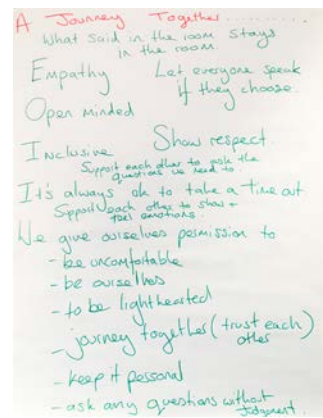 A Journey Together..........
What said in the room stays
in the room.
Empathy
Let everyone speak
if they choose.
Open minded
Inclusive
Show respect
Support each other to ask the
questions we need to.
It's always ok to take a time out
Support each other to show +
feel emotions.
We give ourselves permission to
- be uncomfortable
- be ourselves
- to be lighthearted
- journey together (trust each
other)
- keep it personal
- ask any questions without
judgment.